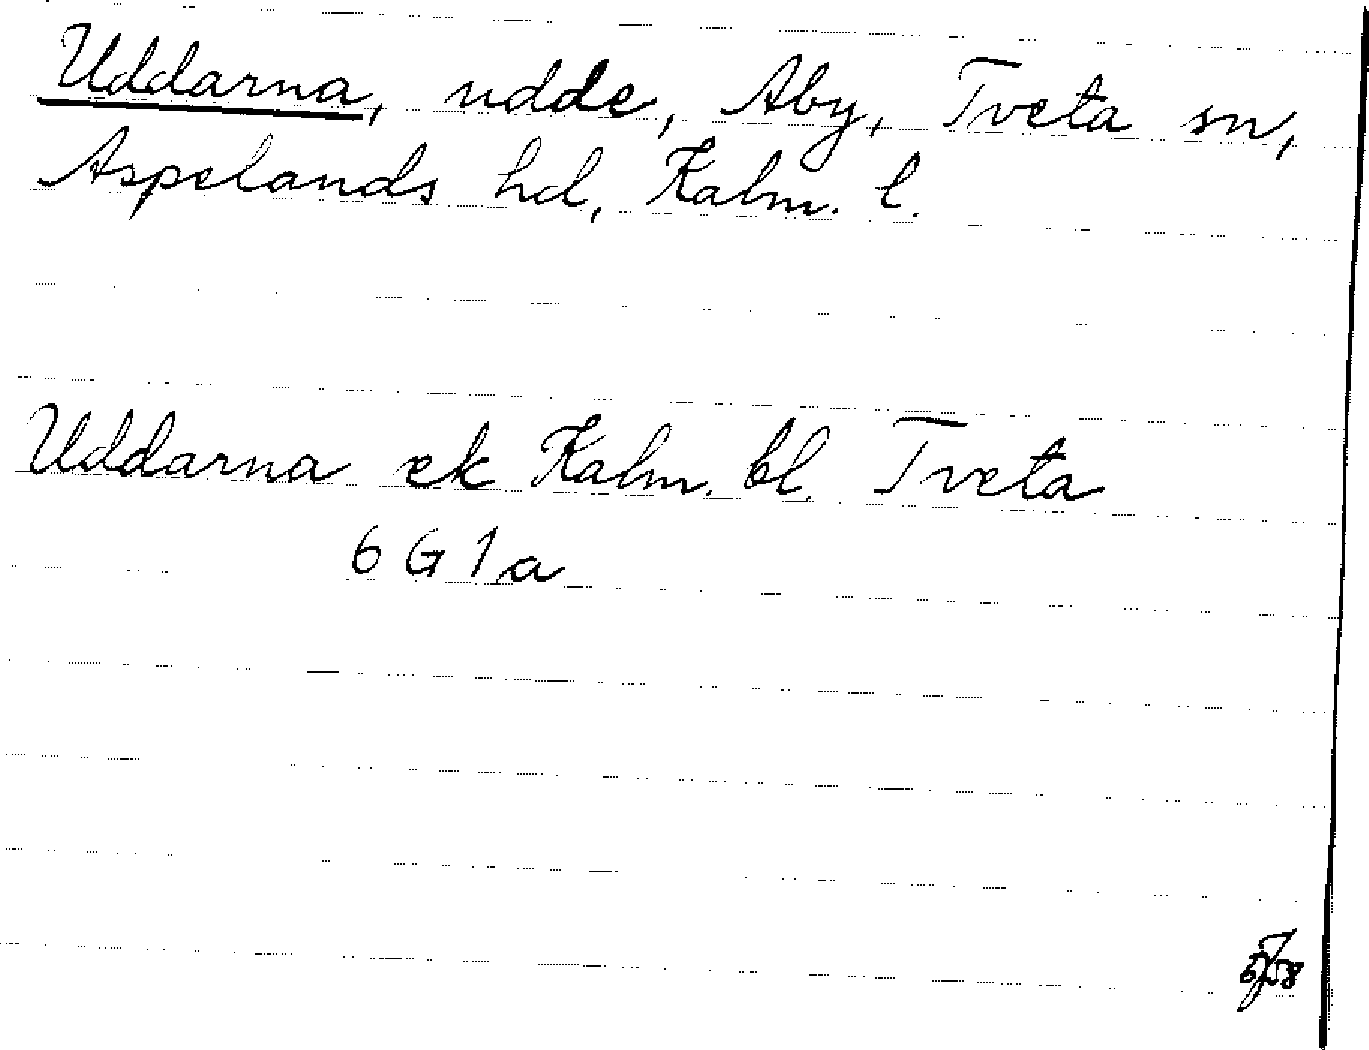 Uddarna, udde, Aby, Tveta sn,
Aspelands hd, Kalm. l.
Uddarna ek Kalm. bl. Tveta
6 G 1 a